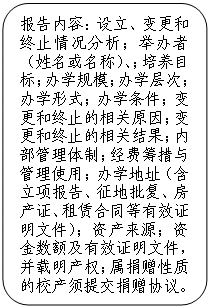 报告内容：设立、变更和
终止情况分析；举办者
（姓名或名称）、；培养目
标；办学规模；办学层次；
办学形式；办学条件；变
更和终止的相关原因；变
更和终止的相关结果；内
部管理体制；经费筹措与
管理使用；办学地址（含
立项报告、征地批复、房
产证、租赁合同等有效证
明文件）；资产来源；资
金数额及有效证明文件，
并载明产权；属捐赠性质
的校产须提交捐赠协议。